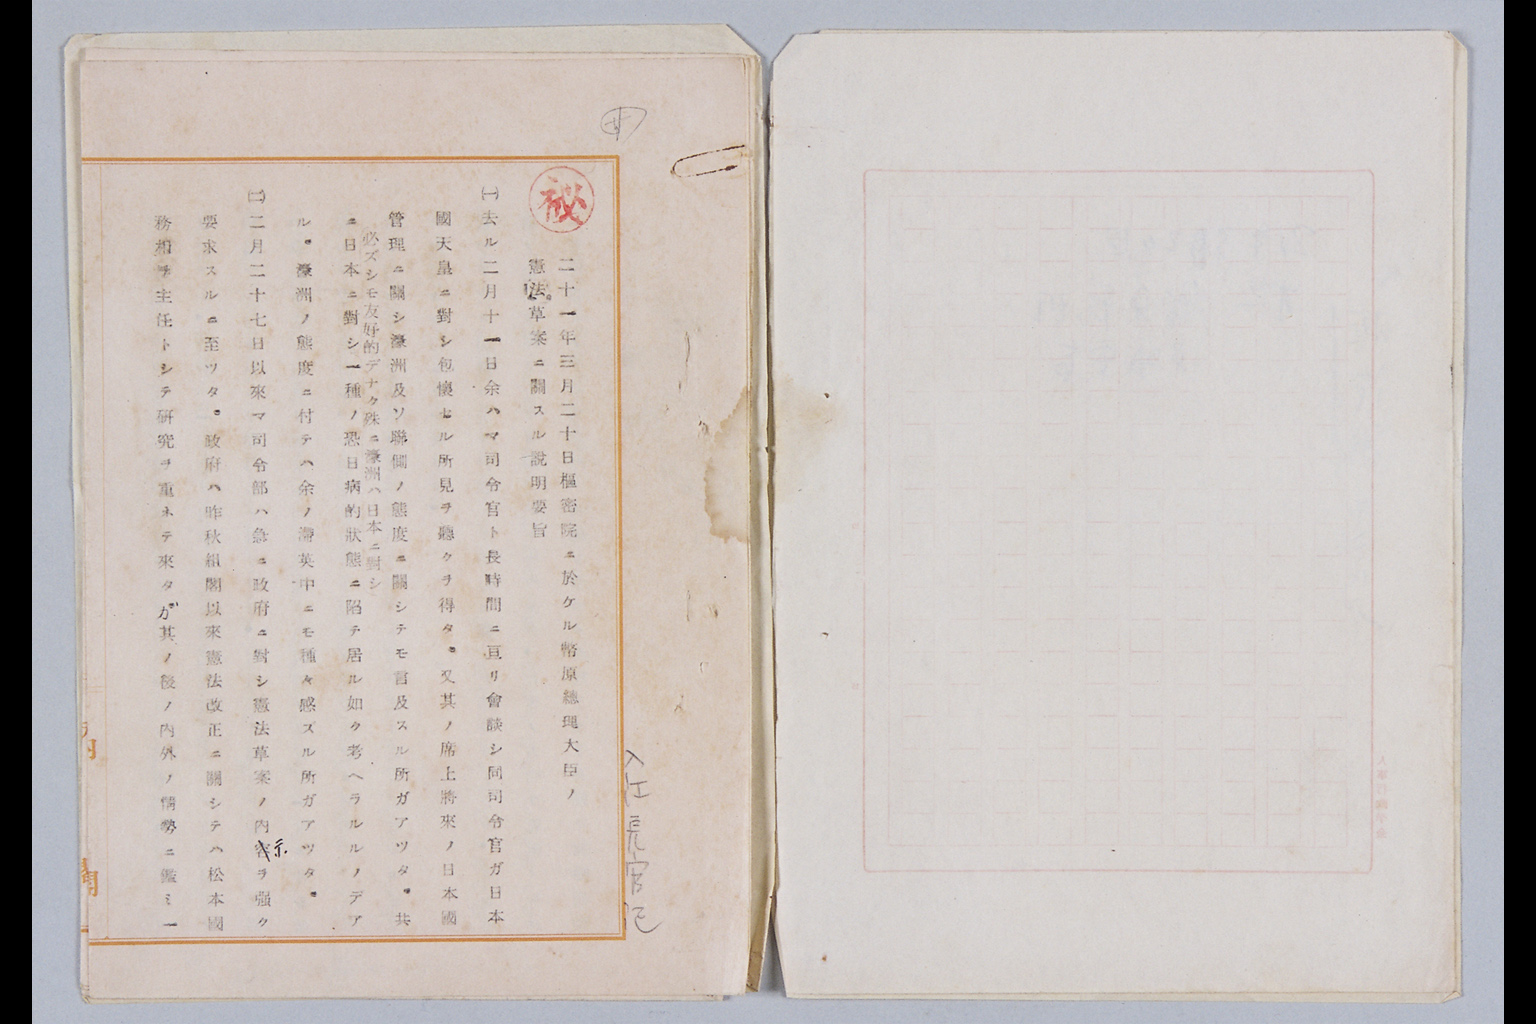 秘
二十一年三月二十日樞密院ニ於ケル幣原總理大臣ノ
憲法草案ニ關スル說明要旨
㈠去ル二月十一日余ハマ司令官ト長時間ニ亘リ會談シ同司令官ガ日本
國天皇ニ對シ包懷セル所見ヲ聽クヲ得タ。又其ノ席上將來ノ日本國
管理ニ關シ濠洲及ソ聯側ノ態度ニ關シテモ言及スル所ガアツタ。共
必ズシモ友好的デナク殊ニ濠洲ハ日本ニ對シ
ニ日本ニ對シ一種ノ恐日病的狀態ニ陷テ居ル如ク考ヘラルルノデア
ル。濠洲ノ態度ニ付テハ余ノ滯英中ニモ種々感ズル所ガアツタ。
㈡二月二十七日以來マ司令部ハ急ニ政府ニ對シ憲法草案ノ內容ヲ强ク
示
要求スルニ至ツタ。政府ハ昨秋組閣以來憲法改正ニ關シテハ松本國
務相ヲ主任トシテ硏究ヲ重ネテ來タガ其ノ後ノ內外ノ情勢ニ鑑ミ一
內閣
入江長官記